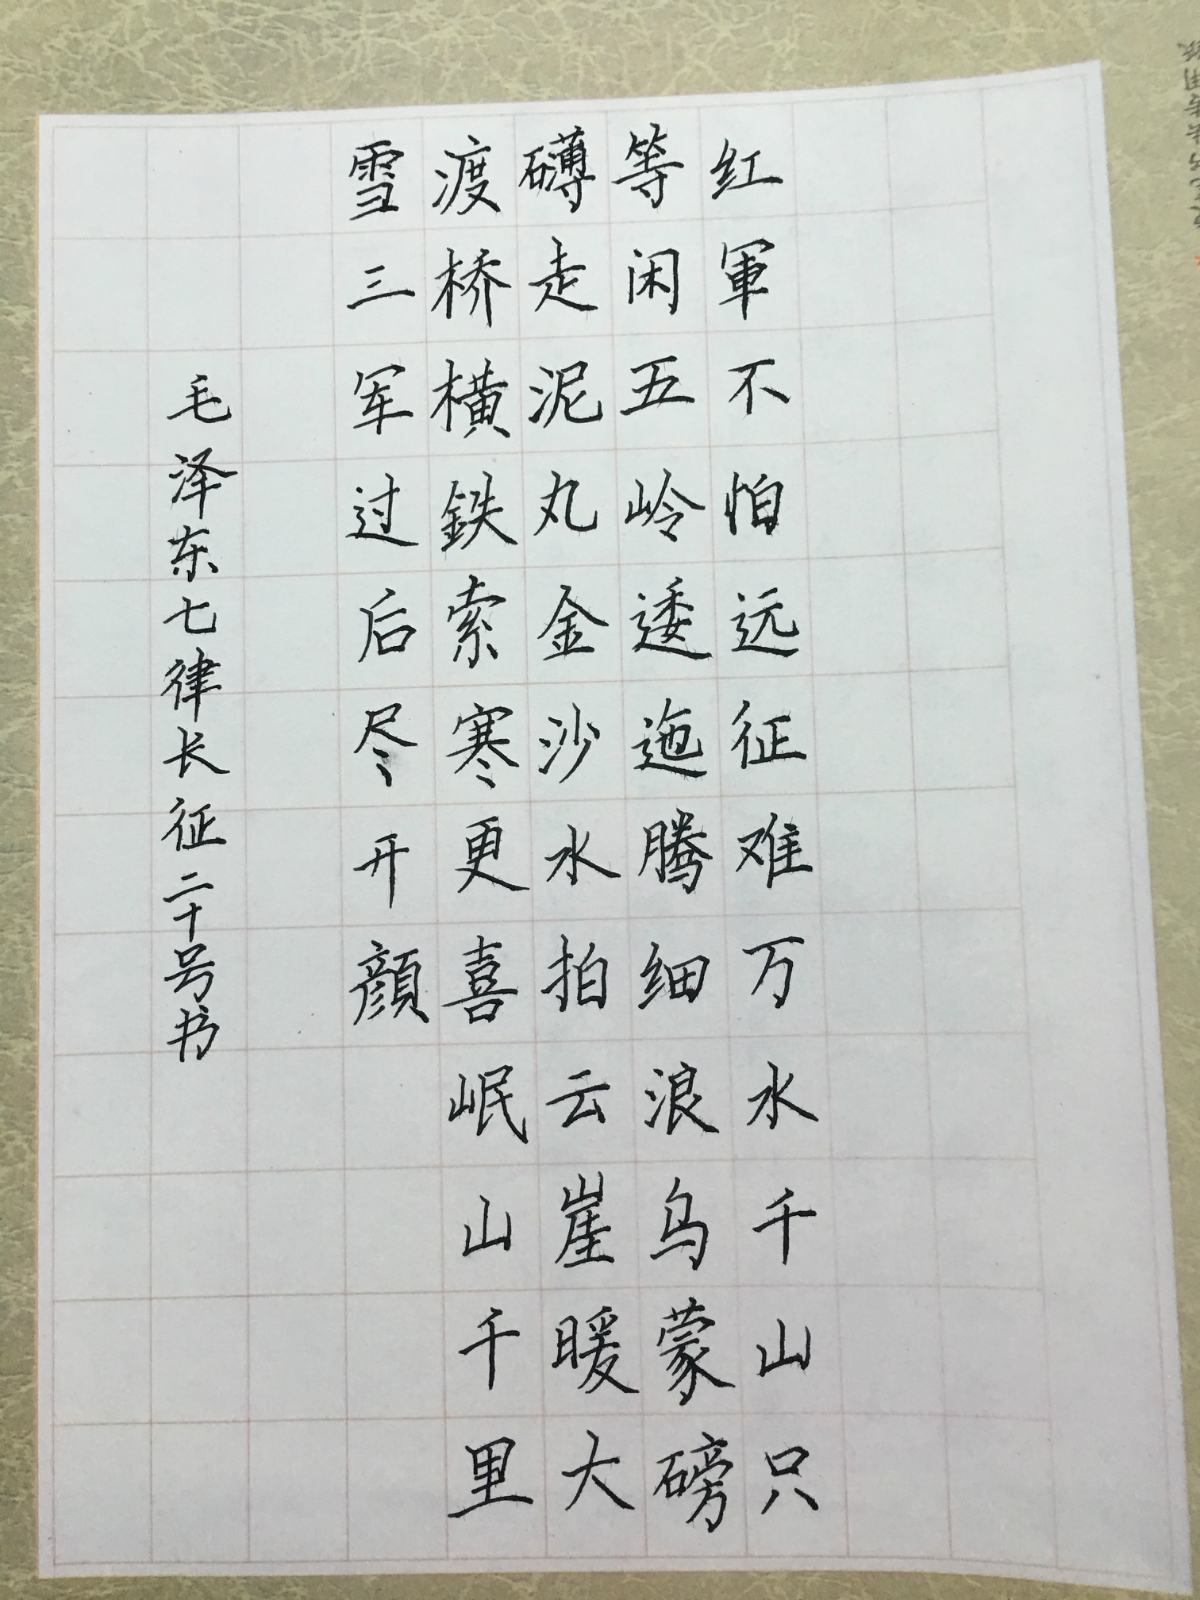 红軍不怕远征难万水千山只
等闲五岭逶迤腾细浪乌蒙磅
礴走泥丸金沙水拍云崖暖大
渡桥横鉄索寒更喜岷山千里
雪三军过后尽开颜
毛泽东七律长征二十号书